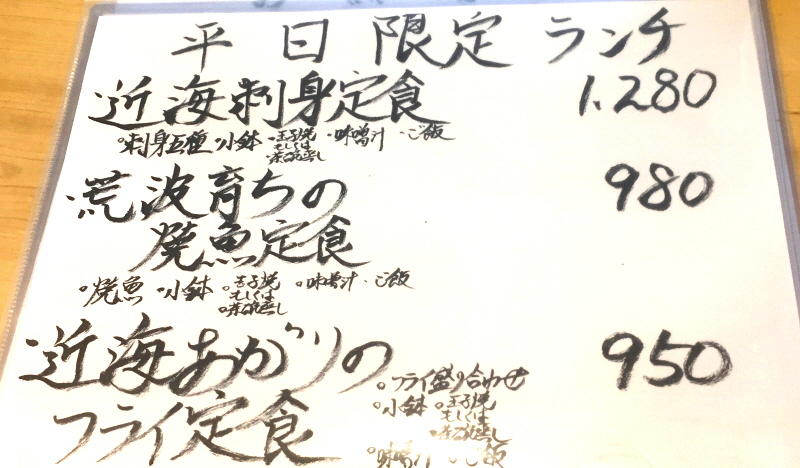 平日限定ランチ
近海刺身定食 1,280
・刺身五種・小鉢・玉子焼もしくは茶碗蒸し・味噌汁・ご飯
荒波育ちの 980
焼魚定食
・焼魚・小鉢・玉子焼もしくは・茶碗蒸し・味噌汁・ご飯
近海あがりの 950
フライ定食
・フライ盛り合わせ
・小鉢・玉子焼もしくは・茶碗蒸し
・味噌汁・ご飯